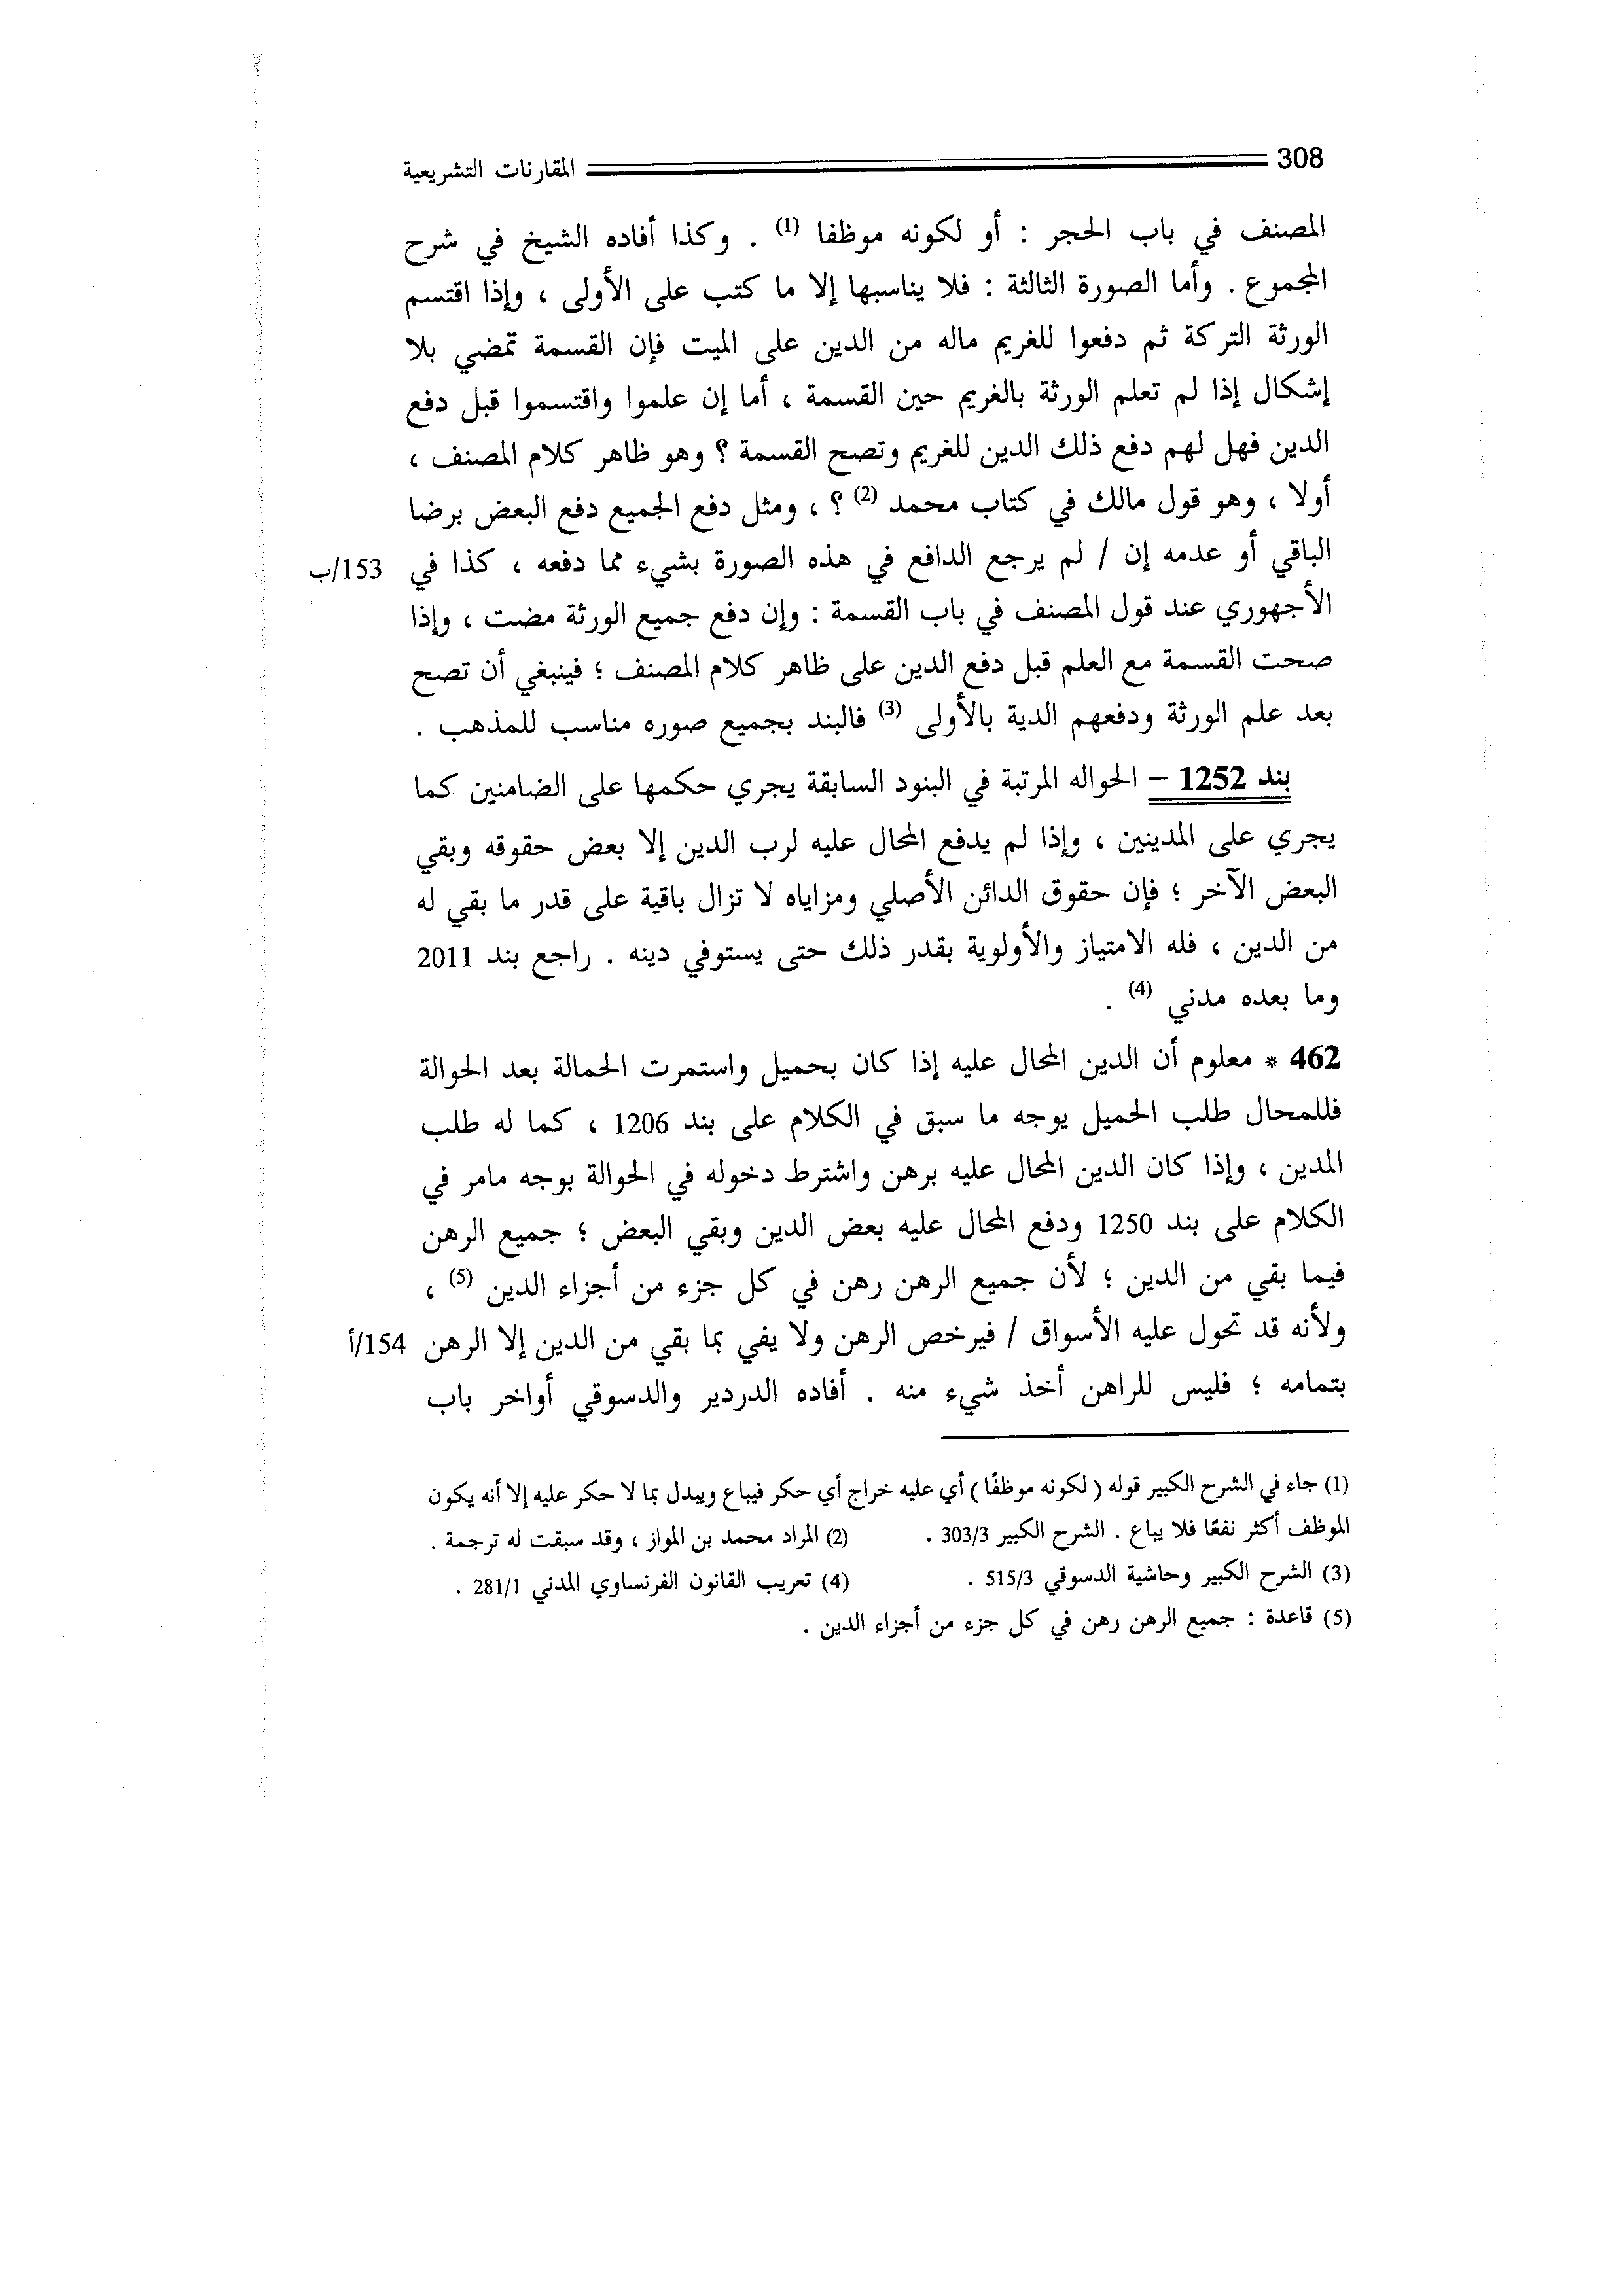 308 المقارنات التشريعية
المصنف في باب الحجر : أو لكونه موظفا (1) . وكذا أفاده الشيخ في شرح
المجموع . وأما الصورة الثالثة : فلا يناسبها إلا ما كتب على الأولى ، وإذا اقتسم
الورثة التركة ثم دفعوا للغريم ماله من الدين على الميت فإن القسمة تمضي بلا
إشكال إذا لم تعلم الورثة بالغريم حين القسمة ، أما إن علموا واقتسموا قبل دفع
الدين فهل لهم دفع ذلك الدين للغريم وتصح القسمة ؟ وهو ظاهر كلام المصنف ،
أولا ، وهو قول مالك في كتاب محمد (2) ؟ ، ومثل دفع الجميع دفع البعض برضا
الباقي أو عدمه إن / لم يرجع الدافع في هذه الصورة بشيء مما دفعه ، كذا في 153/ب
الأجهوري عند قول المصنف في باب القسمة : وإن دفع جميع الورثة مضت ، وإذا
صحت القسمة مع العلم قبل دفع الدين على ظاهر كلام المصنف ؛ فينبغي أن تصح
بعد علم الورثة ودفعهم الدية بالأولى (3) فالبند بجميع صوره مناسب للمذهب .
بند 1252 – الحواله المرتبة في البنود السابقة يجري حكمها على الضامنين كما
يجري على المدينين ، وإذا لم يدفع المحال عليه لرب الدين إلا بعض حقوقه وبقي
البعض الآخر ؛ فإن حقوق الدائن الأصلي ومزاياه لا تزال باقية على قدر ما بقي له
من الدين ، فله الامتياز والأولوية بقدر ذلك حتى يستوفي دينه . راجع بند 2011
وما بعده مدني (4) .
462 * معلوم أن الدين المحال عليه إذا كان بحميل واستمرت الحمالة بعد الحوالة
فللمحال طلب الحميل يوجه ما سبق في الكلام على بند 1206 ، كما له طلب
المدين ، وإذا كان الدين المحال عليه برهن واشترط دخوله في الحوالة بوجه مامر في
الكلام على بند 1250 ودفع المحال عليه بعض الدين وبقي البعض ؛ جميع الرهن
فيما بقي من الدين ؛ لأن جميع الرهن رهن في كل جزء من أجزاء الدين (5) ،
ولأنه قد تحول عليه الأسواق / فيرخص الرهن ولا يفي بما بقي من الدين إلا الرهن 154/أ
بتمامه ؛ فليس للراهن أخذ شيء منه . أفاده الدردير والدسوقي أواخر باب
(1) جاء في الشرح الكبير قوله ( لكونه موظفًا ) أي عليه خراج أي حكر فيباع ويبدل بما لا حكر عليه إلا أنه يكون
الموظف أكثر نفعًا فلا يباع . الشرح الكبير 303/3 . (2) المراد محمد بن المواز ، وقد سبقت له ترجمة .
(3) الشرح الكبير وحاشية الدسوقي 515/3 . (4) تعريب القانون الفرنساوي المدني 281/1 .
(5) قاعدة : جميع الرهن رهن في كل جزء من أجزاء الدين .